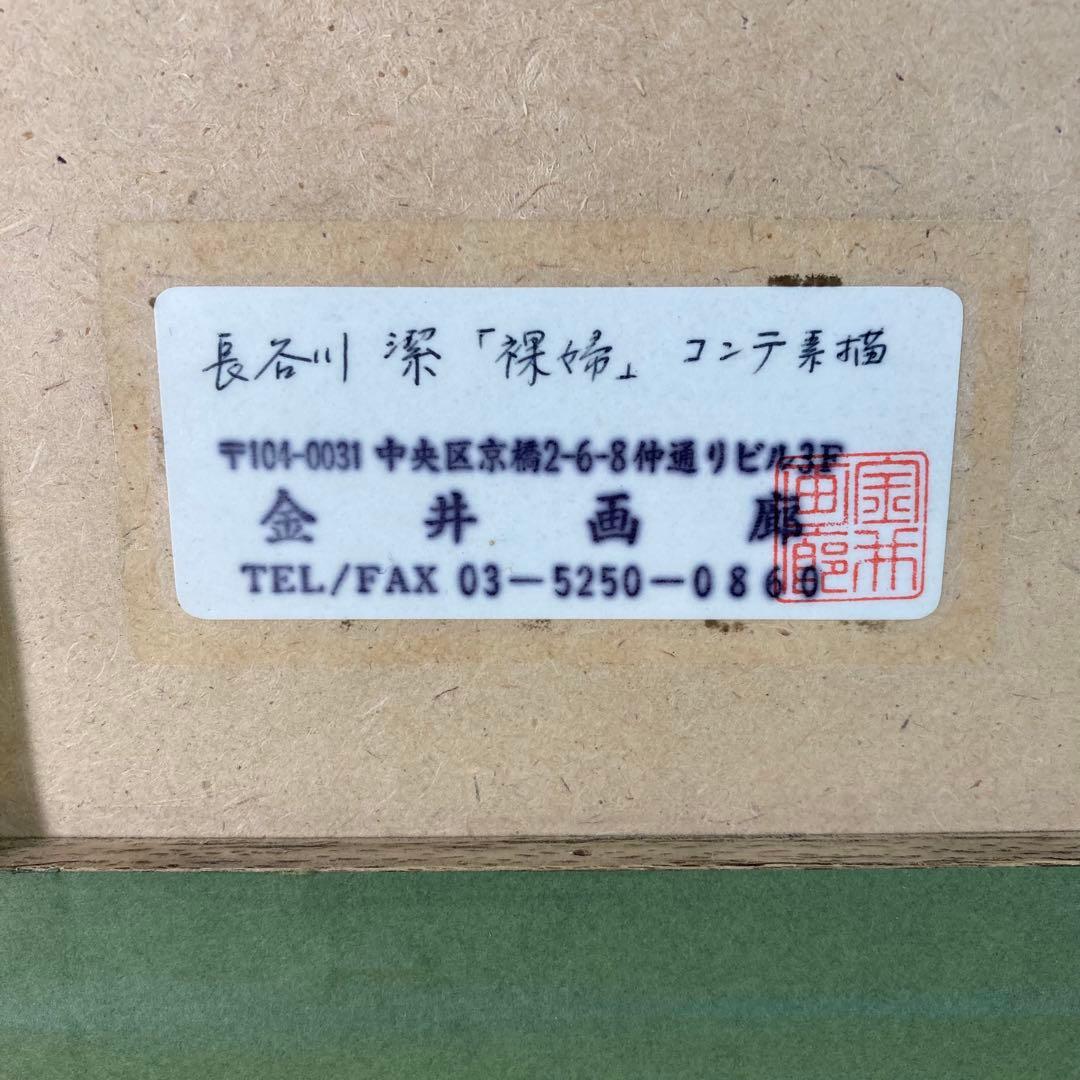 長谷川 潔「裸婦」 コンテ素描
〒104-0031 中央区京橋2-6-8仲通りビル3F
金井画廊
TEL/FAX 03-5250-0860
金井画廊